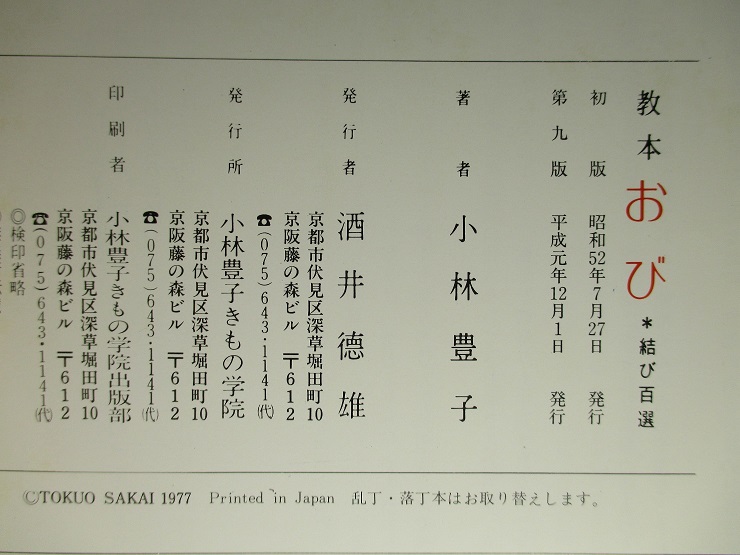 教本おび＊結び百選
初版 昭和52年7月27日 発行
第九版 平成元年12月1日 発行
著者 小林豊子
発行者 酒井德雄
京都市伏見区深草堀田町10
京阪藤の森ビル 〒612
☎(075)643・1141㈹
発行所 小林豊子きもの学院
京都市伏見区深草堀田町10
京阪藤の森ビル 〒612
☎(075)643・1141㈹
印刷者 小林豊子きもの学院出版部
京都市伏見区深草堀田町10
京阪藤の森ビル 〒612
☎(075)643・1141㈹
◎検印省略
©TOKUO SAKAI 1977 Printed in Japan 乱丁・落丁本はお取り替えします。